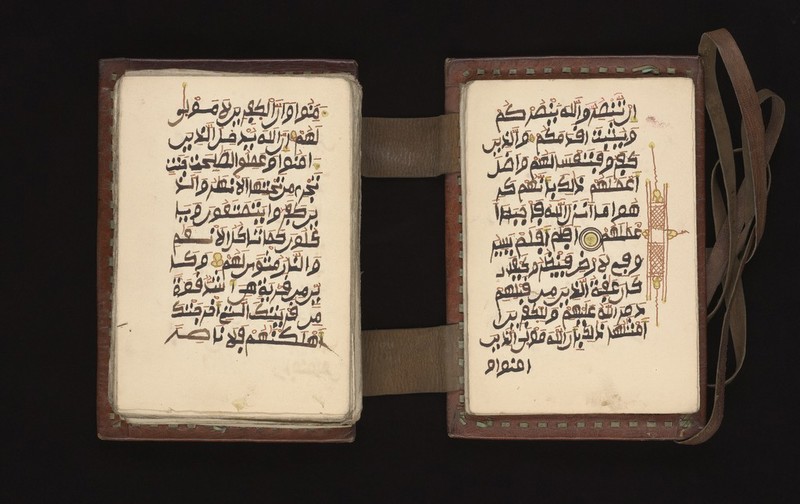 ان تنصروا الله ينصركم
ويثبت اقدامكم والذين
كفروا فتعسا لهم واضل
اعملهم ذلك بانهم كر
هوا ما انزل الله فاحبط ا
عملهم افلم افلم يسير
وا في الارض فينظروا كيف
كان عقبة الذين من قبلهم
دمر الله عليهم وللكفرين
امثلها ذلك بان الله مولى الذين
امنوا و
منوا وان الكفرين لا مولى
لهم ان الله يدخل الذين
امنوا وعملوا الصلحت جنت
تجري من تحتها الانهر والذ
ين كفروا يتمتعون ويا
كلون كما تاكل الانعم
والنار مثوى لهم وكا
ين من قرية هي اشد قوة
من قريتك التي اخرجتك
اهلكنهم فلا ناصر